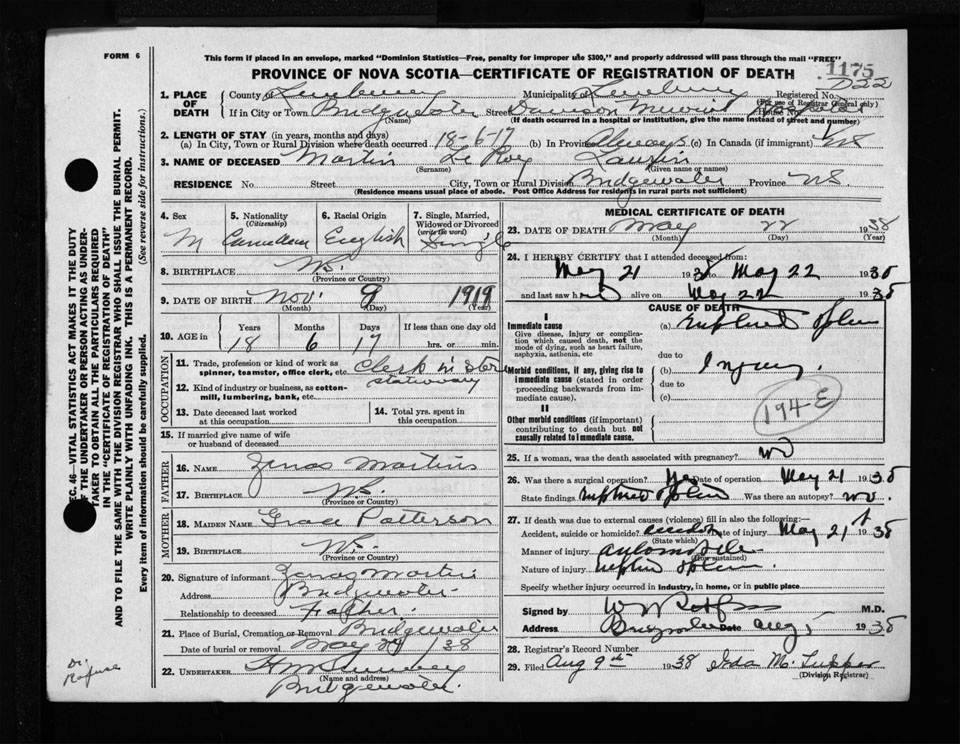 FORM 6
This form if placed in an envelope, marked "Dominion Statistics—Free, penalty for improper use $300," and properly addressed will pass through the mail "FREE"
PROVINCE OF NOVA SCOTIA—CERTIFICATE OF REGISTRATION OF DEATH
1175
222
1. PLACE OF DEATH
County of Lunenburg Municipality of Lunenburg Registered No.
(For use of Registrar General only)
If in City or Town Bridgewater Street Dawson Memorial Hospital House No.
(Name) (If death occurred in a hospital or institution, give the name instead of street and number)
2. LENGTH OF STAY (in years, months and days)
(a) In City, Town or Rural Division where death occurred 18-6-17 (b) In Province Always (c) In Canada (if immigrant)
3. NAME OF DECEASED Martin Le Roy
(Surname) (Given name or names)
RESIDENCE No. Street City, Town or Rural Division Bridgewater Province N.S.
(Residence means usual place of abode. Post Office Address for residents in rural parts not sufficient)
4. Sex M
5. Nationality (Citizenship) Canadian
6. Racial Origin English
7. Single, Married, Widowed or Divorced (write the word) Single
8. BIRTHPLACE N.S.
(Province or Country)
9. DATE OF BIRTH Nov. 9 1919
(Month) (Day) (Year)
10. AGE in Years Months Days If less than one day old
18 6 17 hrs. or min.
OCCUPATION
11. Trade, profession or kind of work as spinner, teamster, office clerk, etc. Clerk in Store
stationary
12. Kind of industry or business, as cotton-mill, lumbering, bank, etc.
13. Date deceased last worked at this occupation
14. Total yrs. spent in this occupation
15. If married give name of wife or husband of deceased
FATHER
16. NAME Zenas Martin
17. BIRTHPLACE N.S.
(Province or Country)
MOTHER
18. MAIDEN NAME Grace Patterson
19. BIRTHPLACE N.S.
(Province or Country)
20. Signature of informant Zenas Martin
Address Bridgewater
Relationship to deceased Father.
21. Place of Burial, Cremation or Removal Bridgewater
Date of burial or removal May 24 / 38
22. UNDERTAKER
(Name and address)
Bridgewater.
MEDICAL CERTIFICATE OF DEATH
23. DATE OF DEATH May 22 1938
(Month) (Day) (Year)
24. I HEREBY CERTIFY that I attended deceased from:
May 21 1938 to May 22 1938
and last saw h alive on May 22 1938
CAUSE OF DEATH
I
Immediate cause
Give disease, injury or complication which caused death, not the mode of dying, such as heart failure, asphyxia, asthenia, etc
(a) ruptured spleen
due to
Morbid conditions, if any, giving rise to immediate cause (stated in order proceeding backwards from immediate cause).
(b) Injury.
due to
(c)
194-E
II
Other morbid conditions (if important) contributing to death but not causally related to immediate cause.
25. If a woman, was the death associated with pregnancy? no
26. Was there a surgical operation? Yes Date of operation May 21 1938
State findings ruptured spleen Was there an autopsy? no.
27. If death was due to external causes (violence) fill in also the following:—
Accident, suicide or homicide? accident Date of injury May 21 1938
(State which)
Manner of injury automobile
(How sustained)
Nature of injury ruptured spleen
Specify whether injury occurred in industry, in home, or in public place
Signed by M.D.
Address Bridgewater Date Aug 5 1938
28. Registrar's Record Number
29. Filed Aug 9th 1938 Ida M. Tupper
(Division Registrar)
SEC. 46—VITAL STATISTICS ACT MAKES IT THE DUTY
OF THE UNDERTAKER OR PERSON ACTING AS UNDERTAKER TO OBTAIN ALL THE PARTICULARS REQUIRED
IN THE "CERTIFICATE OF REGISTRATION OF DEATH"
AND TO FILE THE SAME WITH THE DIVISION REGISTRAR WHO SHALL ISSUE THE BURIAL PERMIT.
WRITE PLAINLY WITH UNFADING INK. THIS IS A PERMANENT RECORD.
Every item of information should be carefully supplied. (See reverse side for instructions.)